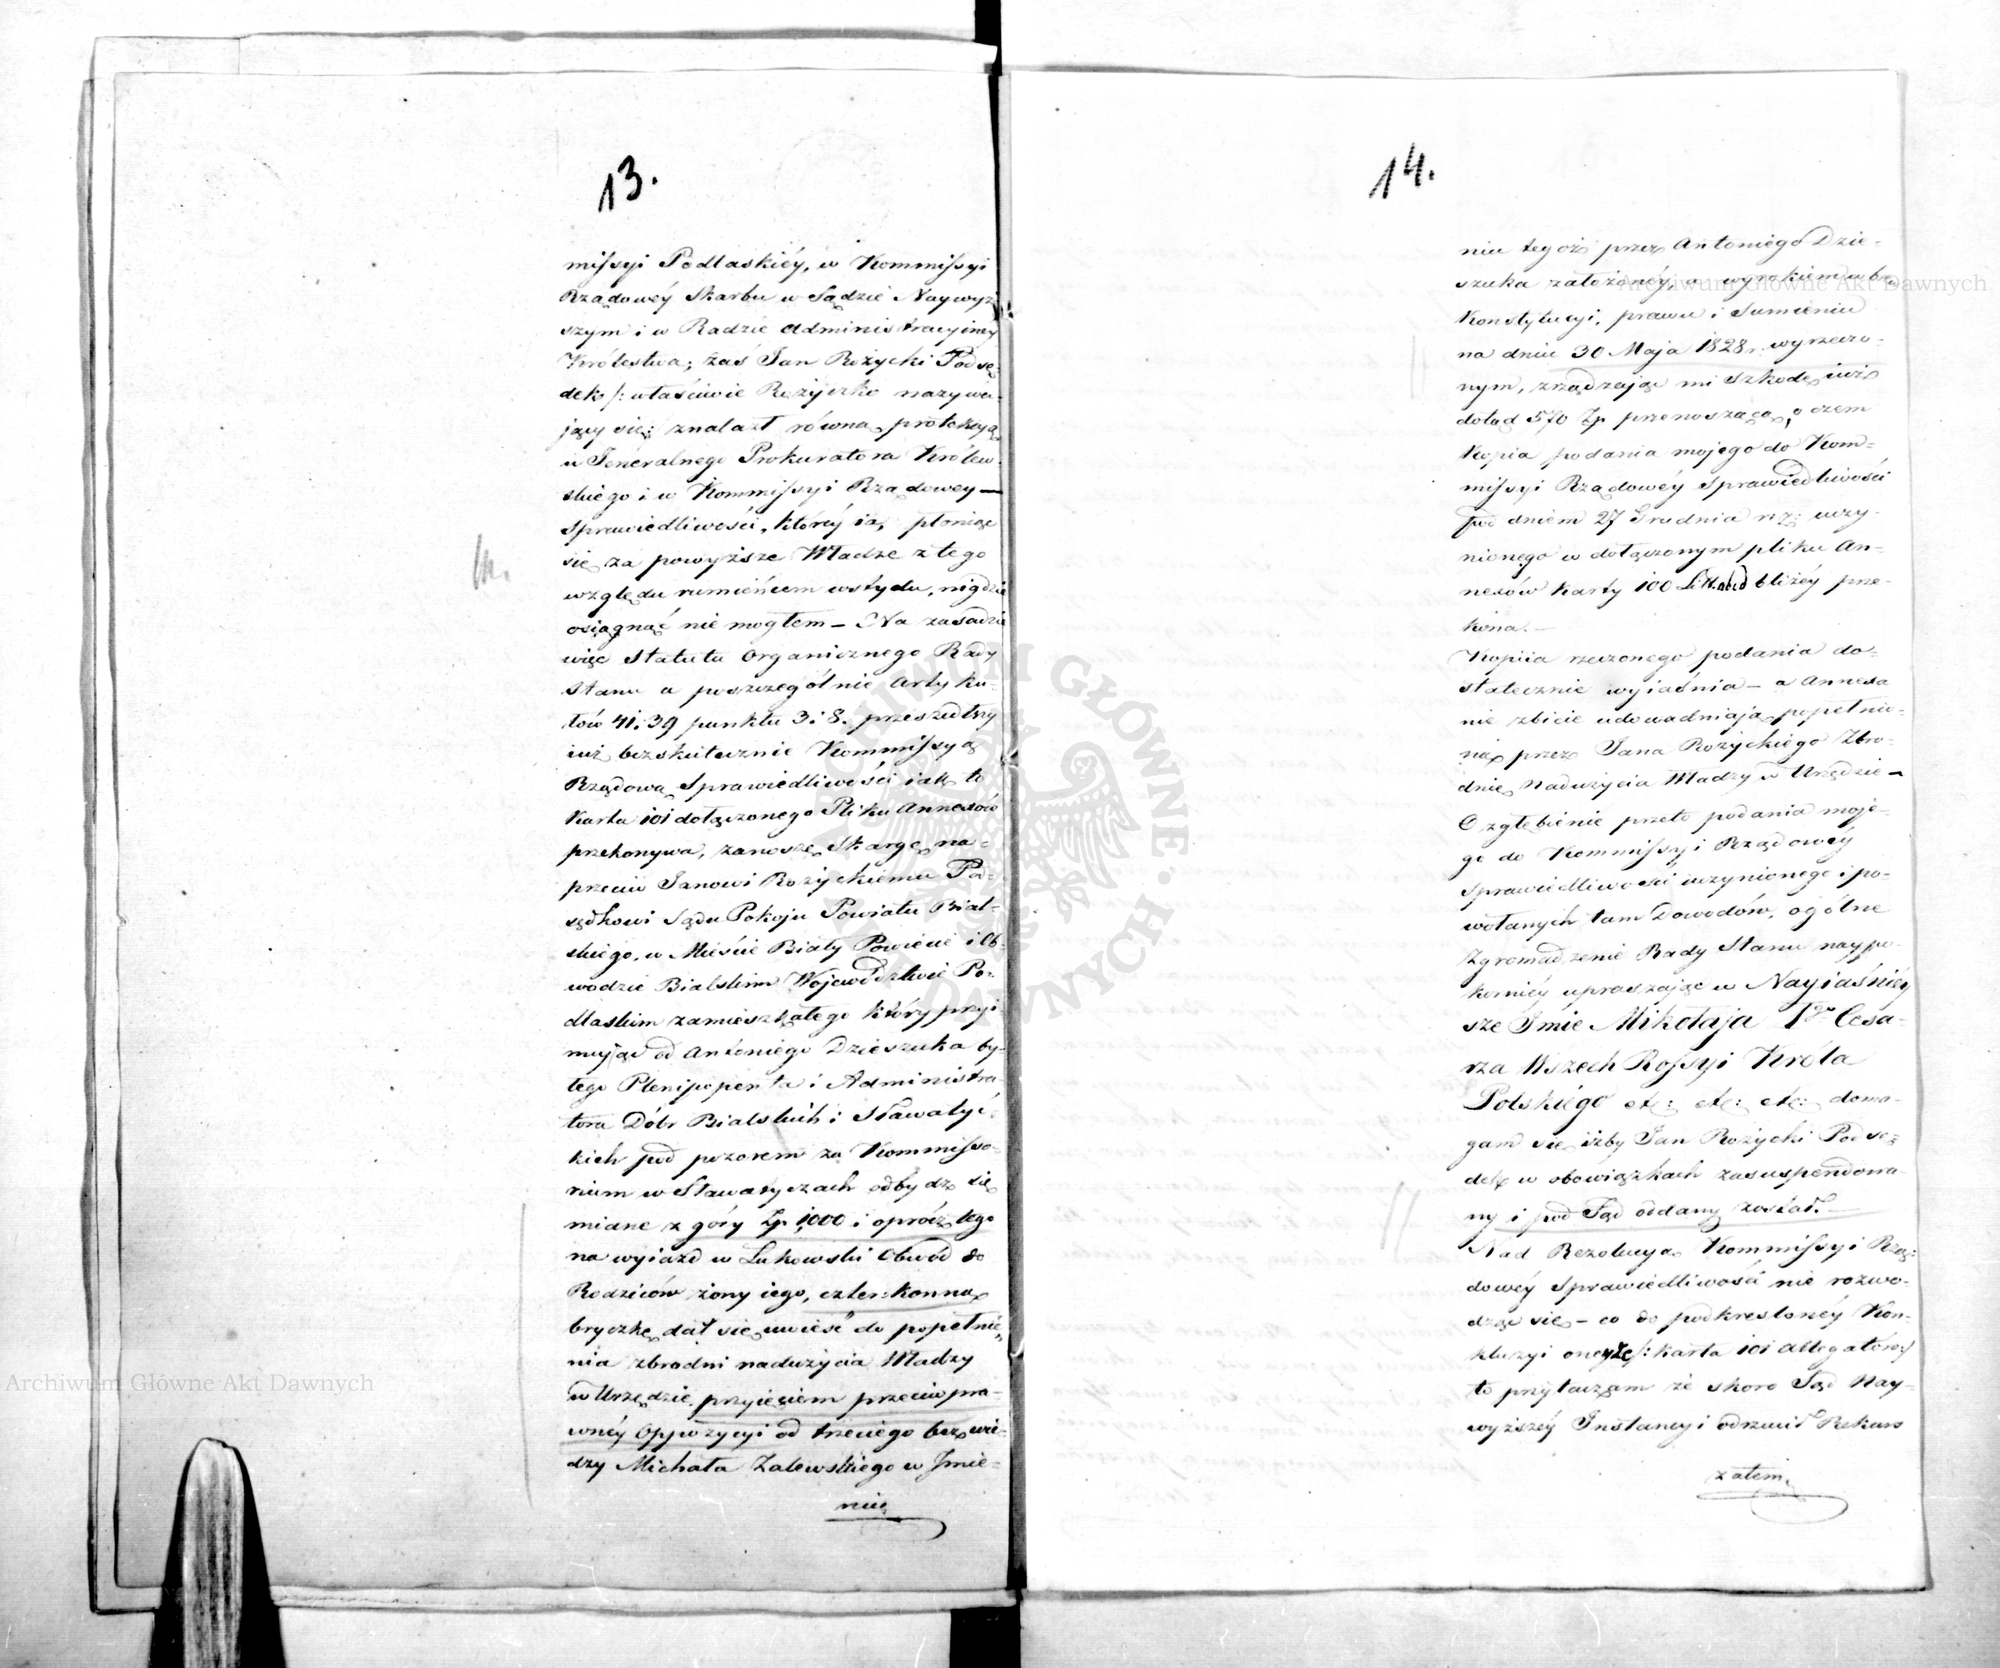 13.
missyi Podlaskiéy, w Kommissyi
Rządowéy Skarbu w Sądzie Naywyż
szym i w Radzie Administracyiney
Królestwa; zaś Jan Rożycki Podsę
dek /: właściwie Rożyczko nazywa-
jący się: znalazł równą protekcyą
u Generalnego Prokuratora Królew-
skiego i w Kommissyi Rządowey —
Sprawiedliwości, któréy ia, płoniąc
się za powyższe Władze z tego
względu rumieńcem wstydu, nigdzie
osiągnąć nie mogłem — Na zasadzie
więc Statutu Organicznego Rady
Stanu a poszczególnie Artyku-
łów 41. 39 punktu 3. i 8. przeszedłszy
iuż bezskutecznie Kommissyą
Rządową Sprawiedliwości iak to
Karta 101 dołączonego Pliku Annexów
przekonywa, zanoszę Skargę na-
przeciw Janowi Rożyckiemu Pod-
sędkowi Sądu Pokoju Powiatu Bial-
skiego, w Mieście Biały Powiecie i Ob-
wodzie Bialskim Województwie Po-
dlaskim zamieszkałego który przyi-
mując od Antoniego Dzieszuka by-
łego Plenipotenta i Administra-
tora Dóbr Bialskich i Sławatyc-
kich pod pozorem za Kommisso-
rium w Sławatyczach odbydź się
miane z góry Zp. 1,000 i oprócz tego
na wyiazd w Łukowski Obwód do
Rodziców żony iego, cztero konną
bryczkę, dał się uwieść do popełnie-
nia zbrodni nadużycia Władzy
w Urzędzie, przyięciem przeciw pra-
wnéy Oppozycyi od trzeciego bez wie-
dzy Michała Zalewskiego w Jmie-
niu
14.
niu tegoż przez Antoniego Dzie-
szuka założonéy, a wyrokiem wbre
Konstytucyi, prawu i Sumieniu
na dniu 30 Maja 1828 r. wyrzeczo-
nym, zrządzając mi szkodę iuż
dotąd 570 Zp. przenoszącą, o czem
Kopia podania mojego do Kom-
missyi Rządowéy Sprawiedliwości
pod dniem 27 Grudnia rz: uczy-
nionego w dołączonym pliku An-
nexów karty 100 bliżéy prze-
kona. —
Kopiia rzeczonego podania do-
statecznie wyiaśnia — a Annexa
nie zbicie udowadniają popełnio-
ną przez Jana Rożyckiego Zbro-
dnię Nadużycia Władzy w Urzędzie —
O zgłębienie przeto podania moje-
go do Kommissyi Rządowéy
Sprawiedliwości uczynionego i po-
wołanych tam Dowodów, ogólne
Zgromadzenie Rady Stanu naypo-
korniéy upraszając w Nayiaśniéy
sze Jmie Mikołaja Igo Cesa-
rza Wszech Rossyi Króla
Polskiégo etc: etc: etc: doma-
gam się iżby Jan Rożycki Podsę-
dek w obowiązkach zasuspendowa-
ny i pod Sąd oddany został. —
Nad Rezolucyą Kommissyi Rzą-
dowéy Sprawiedliwości nie rozwo-
dząc się — co do podkresloney Kon-
kluzyi oneyże /: karta 101 Allegatów:/
to przytaczam że skoro Sąd Nay-
wyższéy Instancyi odrzucił Rekurs
zatem
Archiwum Główne Akt Dawnych
Archiwum Główne Akt Dawnych
ARCHIWUM GŁÓWNE AKT DAWNYCH